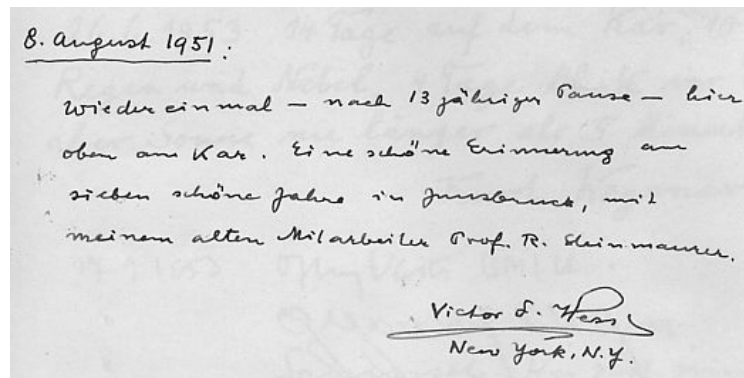 8. August 1951:
Wieder einmal – nach 13 jähriger Pause – hier
oben am Kar. Eine schöne Erinnerung an
sieben schöne Jahre in Innsbruck, mit
meinem alten Mitarbeiter Prof. R. Steinmaurer.
Victor F. Hess
New York, N.Y.